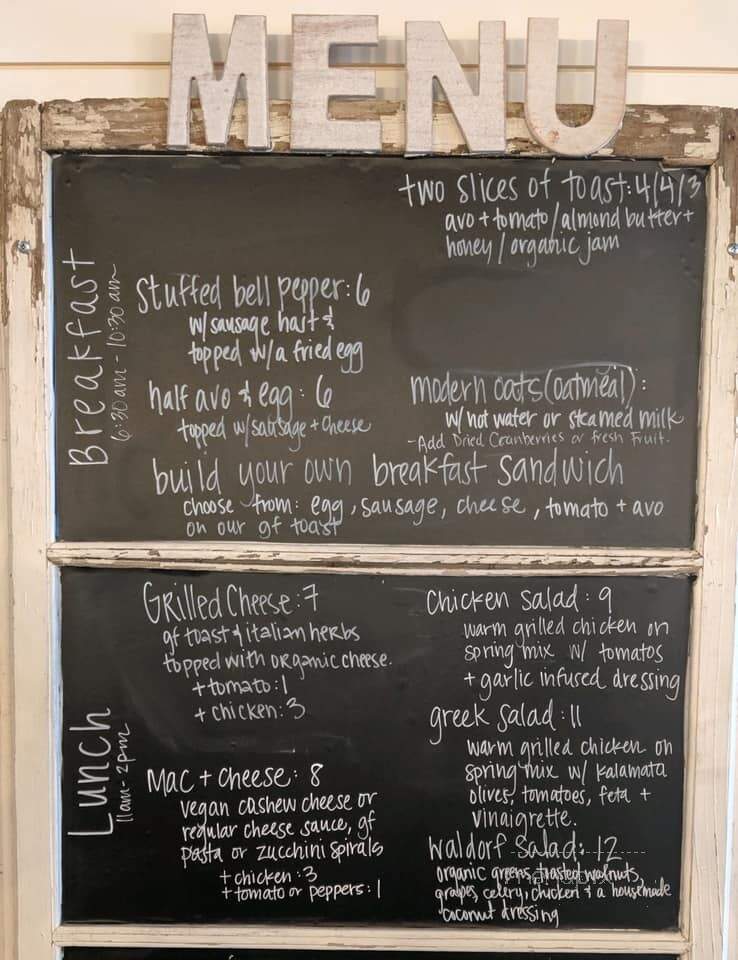 MENU
Breakfast
6:30 am - 10:30 am
two slices of toast: 4/4/3
avo + tomato / almond butter +
honey / organic jam
Stuffed bell pepper: 6
w/ sausage hash &
topped w/ a fried egg
half avo & egg: 6
topped w/ sausage + cheese
modern oats (oatmeal):
w/ hot water or steamed milk
-Add Dried Cranberries or fresh Fruit.
build your own breakfast sandwich
choose from: egg, sausage, cheese, tomato + avo
on our gf toast
Lunch
11am - 2pm
Grilled Cheese: 7
gf toast & italian herbs
topped with organic cheese.
+ tomato: 1
+ chicken: 3
Mac + cheese: 8
vegan cashew cheese or
regular cheese sauce, gf
pasta or zucchini spirals
+ chicken: 3
+ tomato or peppers: 1
Chicken Salad: 9
warm grilled chicken on
spring mix w/ tomatos
+ garlic infused dressing
greek Salad: 11
warm grilled chicken on
spring mix w/ kalamata
olives, tomatoes, feta +
vinaigrette.
waldorf Salad: 12
organic greens, toasted walnuts,
grapes, celery, chicken & a housemade
coconut dressing